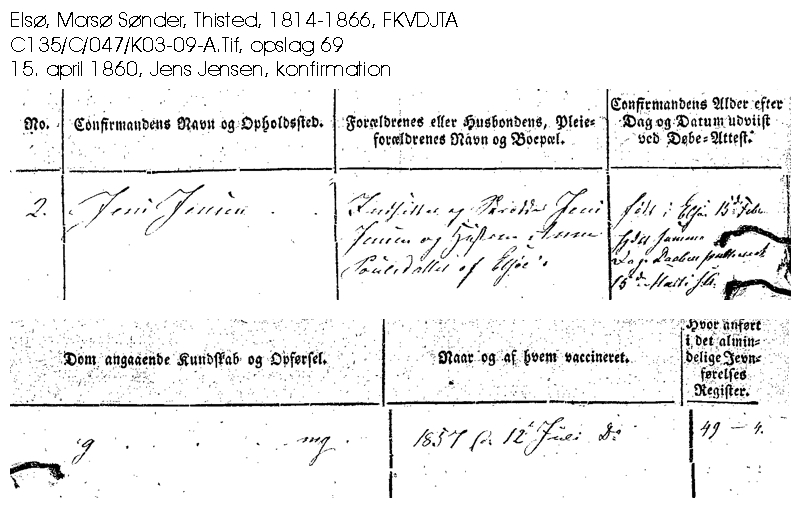 Elsø, Morsø Sønder, Thisted, 1814-1866, FKVDJTA
C135/C/047/K03-09-A.Tif, opslag 69
15. april 1860, Jens Jensen, konfirmation
No.
Confirmandens Navn og Opholdssted.
Forældrenes eller Husbondens, Pleie=
forældrenes Navn og Boepæl.
Confirmandens Alder efter
Dag og Datum udviist
ved Døbe-Attest.
2.
Jens Jensen
Indsidder og Skrædder Jens
Jensen og Hustrue Anne
Poulsdatter af Elsøe
født i Elsøe 15de Febr
hjdbt samme
Dag. Daaben
15de Marts
Dom angaaende Kundskab og Opførsel.
Naar og af hvem vaccineret.
Hvor anført
i det almin=
delige Jevn=
førelses
Register.
g
mg.
1857 12 Juli
49 - 4.